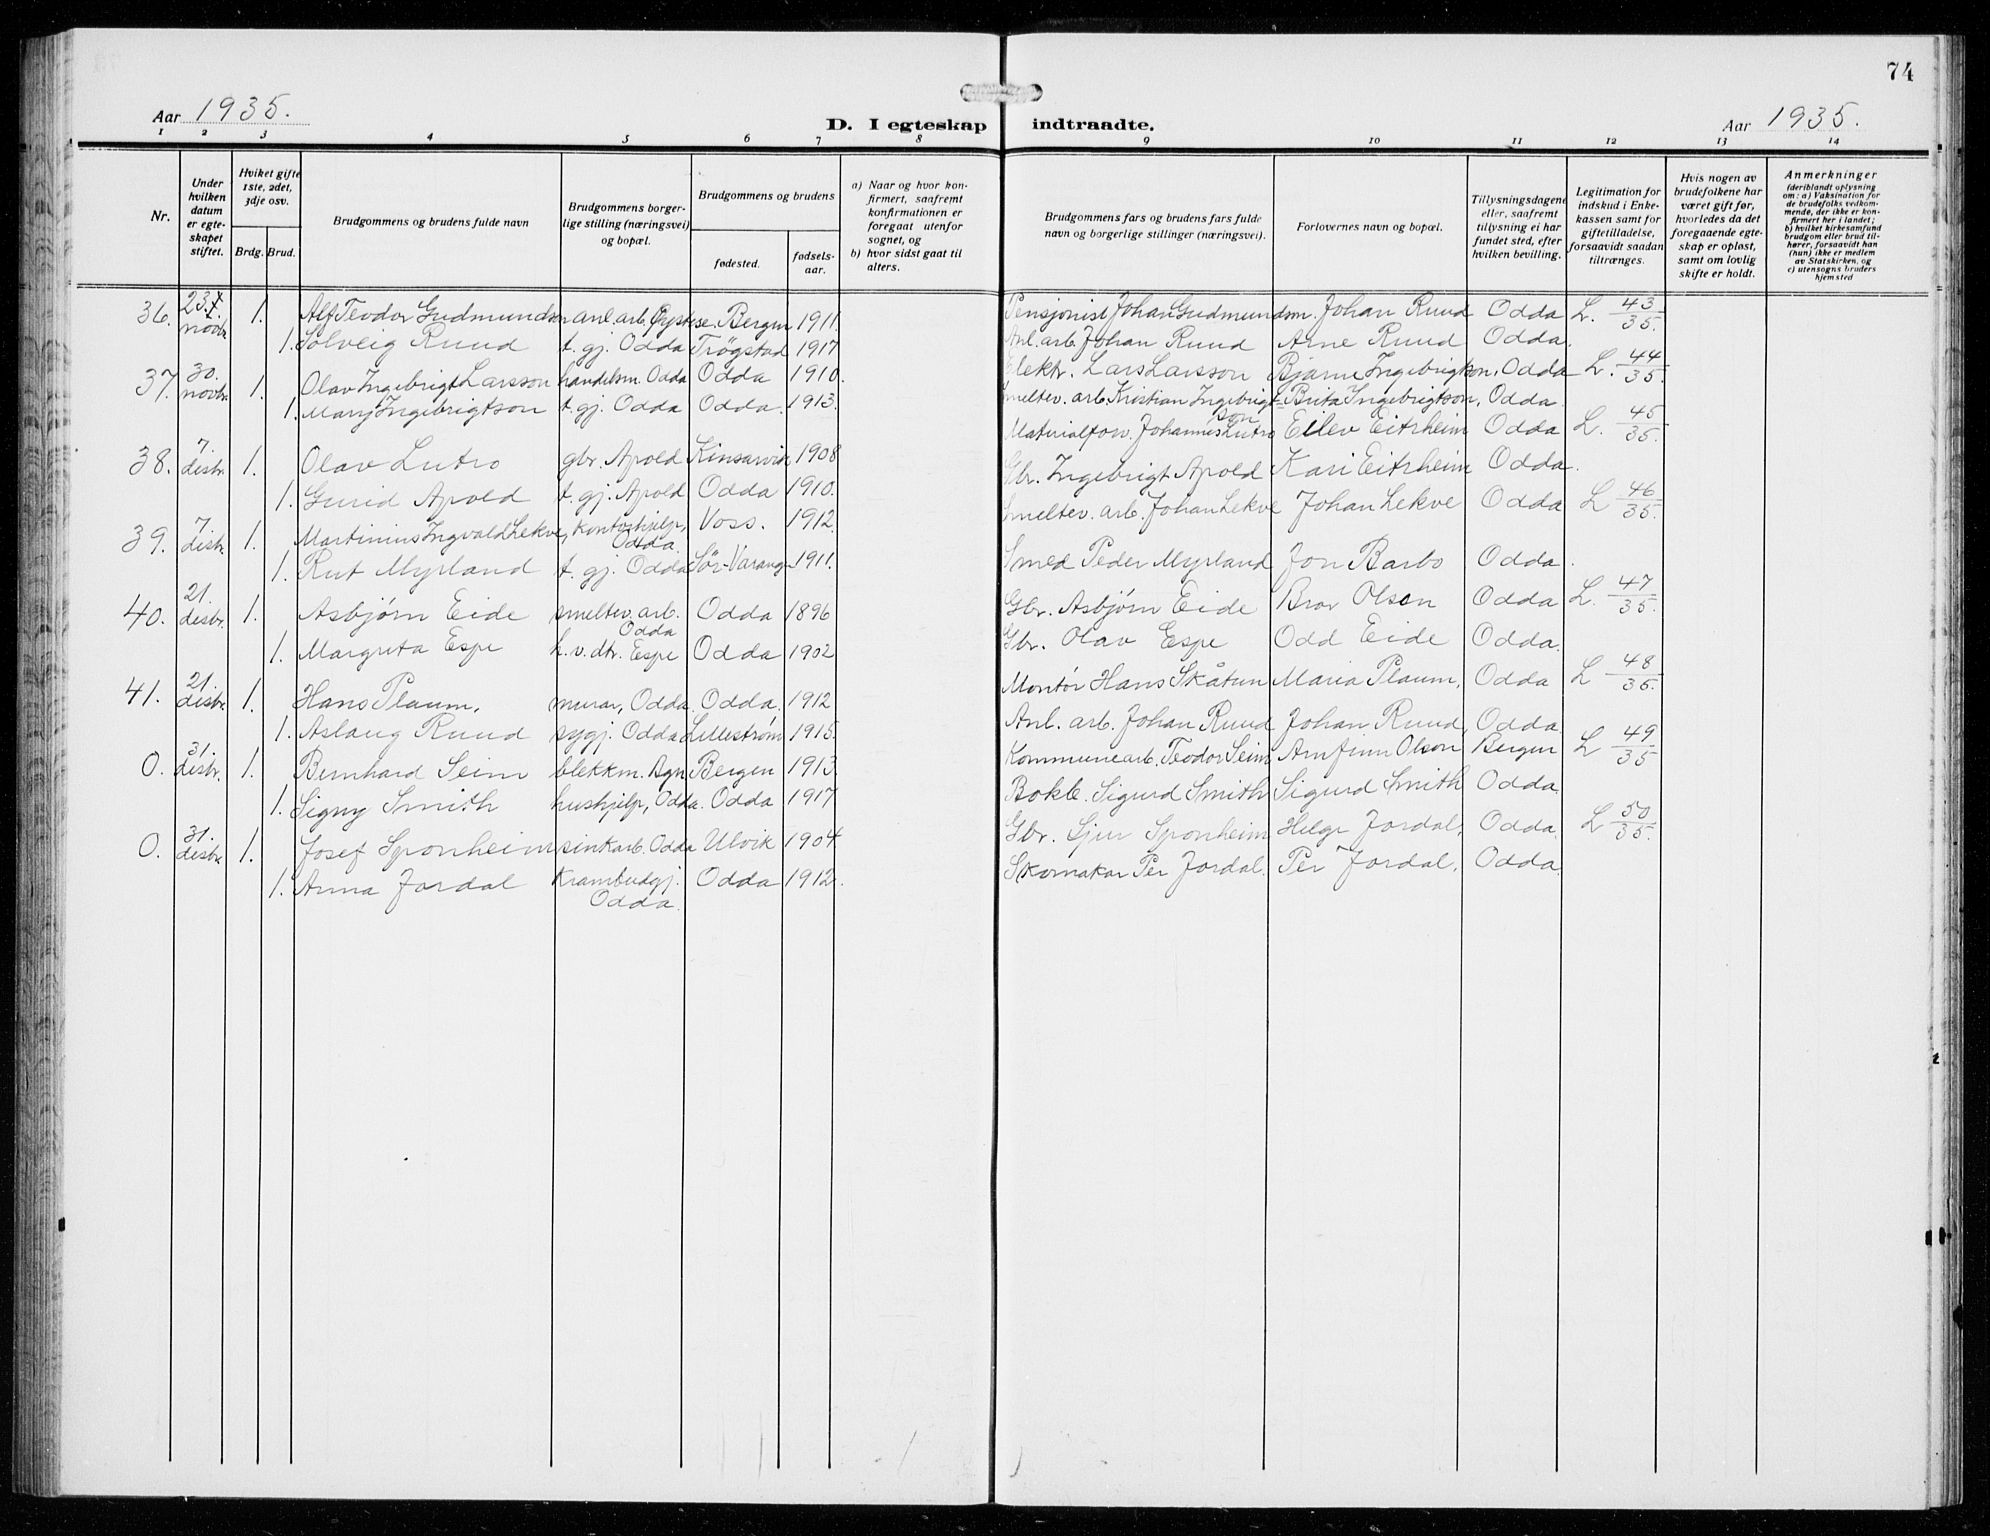 74
Aar 1935.
D. I egteskap indtraadte.
Aar 1935.
1 2 3 4 5 6 7 8 9 10 11 12 13 14
Nr.
Under hvilken datum er egte-skapet stiftet.
Hviket gifte 1ste, 2det, 3dje osv.
Brdg. Brud.
Brudgommens og brudens fulde navn
Brudgommens borger-lige stilling (næringsvei) og bopæl.
Brudgommens og brudens
fødested.
fødsels-aar.
a) Naar og hvor kon-firmert, saafremt konfirmationen er foregaat utenfor sognet, og
b) hvor sidst gaat til alters.
Brudgommens fars og brudens fars fulde navn og borgerlige stillinger (næringsvei).
Forlovernes navn og bopæl.
Tillysningsdagene eller, saafremt tillysning ei har fundet sted, efter hvilken bevilling.
Legitimation for indskud i Enke-kassen samt for giftetilladelse, forsaavidt saadan tiltrænges.
Hvis nogen av brudefolkene har været gift før, hvorledes da det foregaaende egte-skap er opløst, samt om lovlig skifte er holdt.
Anmerkninger
(deriblandt oplysning om: a) Vaksination for de brudefolks vedkom-mende, der ikke er kon-firmert her i landet; b) hvilket kirkesamfund brudgom eller brud til-hører, forsaavidt han (hun) ikke er medlem av Statskirken, og c) utensogns bruders hjemsted
36. 23. novbr. 1. Alf Teodor Gudmundsen anl. arb. Øystese. Bergen 1911. Pensjonist Johan Gudmundsen. Johan Ruud Odda L. 43/35.
1. Solveig Ruud t. gj. Odda Trøgstad 1917 Anl. arb. Johan Ruud Arne Ruud Odda.
37. 30. novbr. 1. Olav Ingebrigt Larsson handelsm. Odda Odda 1910. Elektr. Lars Larsson Bjarne Ingebrigtson, Odda L. 44/35.
1. Mary Ingebrigtson t. gj. Odda Odda. 1913. Smeltev. arb. Kristian Ingebrigtson Brita Ingebrigtson, Odda.
38. 7. desbr. 1. Olav Lutro gbr. Apold Kinsarvik 1908 Materialforv. Johannes Lutro Eilev Eitrheim Odda L. 45/35.
1. Gurid Apold t. gj. Apold Odda 1910. Gbr. Ingebrigt Apold Kari Eitrheim Odda.
39. 7. desbr. 1. Martinius Ingvald Lekve, kontorhjelp, Odda. Voss. 1912. Smeltev. arb. Johan Lekve Johan Lekve Odda L 46/35.
1. Rut Myrland t. gj. Odda Sør-Varang 1911. Smed Peder Myrland Jon Barbo Odda.
40. 21. desbr. 1. Asbjørn Eide smeltev. arb. Odda Odda 1896 Gbr. Asbjørn Eide Bror Olsen Odda L. 47/35.
1. Margreta Espe h. v. dtr. Espe Odda 1902 Gbr. Olav Espe Odd Eide Odda.
41. 21. desbr. 1. Hans Plaum, murar, Odda. Odda. 1912 Montør Hans Skåtun Maria Plaum, Odda L 48/35.
1. Aslaug Ruud sygj. Odda Lillestrøm 1915. Anl. arb. Johan Ruud Johan Ruud, Odda.
0. 31. desbr. 1. Bernhard Seim blekkm. Bgn Bergen 1913. Kommunearb. Teodor Seim Arnfinn Olson Bergen L 49/35
1. Signy Smith hushjelp, Odda. Odda 1917 Bokb. Sigurd Smith Sigurd Smith Odda.
0. 31. desbr. 1. Josef Sponheim sinkarb. Odda Ulvik 1904. Gbr. Sjur Sponheim Helge Jordal, Odda. L 50/35.
1. Anna Jordal Krambudgj. Odda. Odda 1912. Skomakar Per Jordal. Per Jordal, Odda.